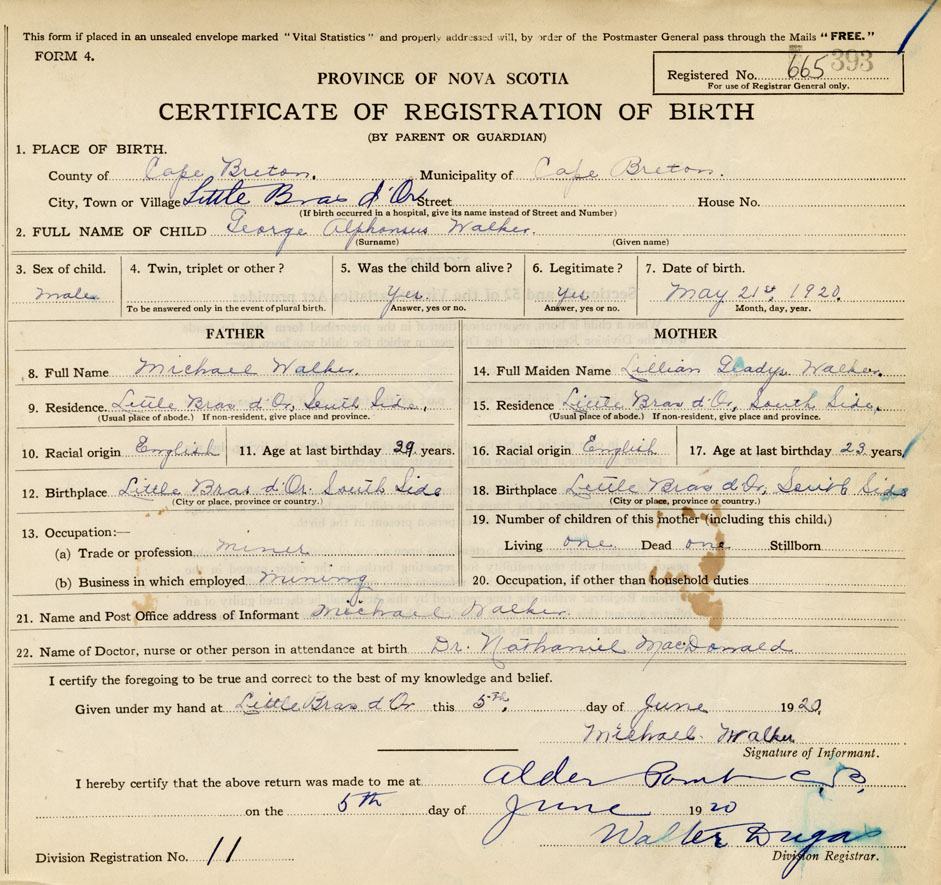 This form if placed in an unsealed envelope marked "Vital Statistics" and properly addressed will, by order of the Postmaster General pass through the Mails "FREE."
FORM 4.
Registered No. 665 393
For use of Registrar General only.
PROVINCE OF NOVA SCOTIA
CERTIFICATE OF REGISTRATION OF BIRTH
(BY PARENT OR GUARDIAN)
1. PLACE OF BIRTH.
County of Cape Breton. Municipality of Cape Breton.
City, Town or Village Little Bras d'Or Street House No.
(If birth occurred in a hospital, give its name instead of Street and Number)
2. FULL NAME OF CHILD George Alphonsus Walker.
(Surname) (Given name)
3. Sex of child. 4. Twin, triplet or other? 5. Was the child born alive? 6. Legitimate? 7. Date of birth.
Male Yes. Yes May 21st, 1920.
To be answered only in the event of plural birth. Answer, yes or no. Answer, yes or no. Month, day, year.
FATHER
8. Full Name Michael Walker.
9. Residence. Little Bras d'Or, South Side,
(Usual place of abode.) If non-resident, give place and province.
10. Racial origin English 11. Age at last birthday 29 years.
12. Birthplace Little Bras d'Or. South Side
(City or place, province or country.)
13. Occupation:—
(a) Trade or profession miner
(b) Business in which employed mining
MOTHER
14. Full Maiden Name Lillian Gladys Walker.
15. Residence Little Bras d'Or, South Side,
(Usual place of abode.) If non-resident, give place and province.
16. Racial origin English 17. Age at last birthday 23 years.
18. Birthplace Little Bras d'Or, South Side
(City or place, province or country.)
19. Number of children of this mother (including this child.)
Living one Dead one Stillborn
20. Occupation, if other than household duties
21. Name and Post Office address of Informant Michael Walker.
22. Name of Doctor, nurse or other person in attendance at birth Dr. Nathaniel MacDonald
I certify the foregoing to be true and correct to the best of my knowledge and belief.
Given under my hand at Little Bras d'Or this 5th. day of June 1920.
Michael Walker
Signature of Informant.
I hereby certify that the above return was made to me at Alder Point C.B.
on the 5th day of June 1920
Walter Dugas
Division Registrar.
Division Registration No. 11